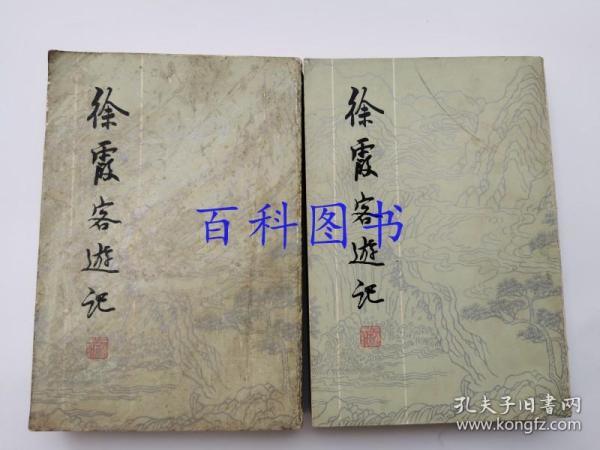 徐霞客遊记
徐霞客遊记
百科图书
孔夫子旧书网
www.kongfz.com